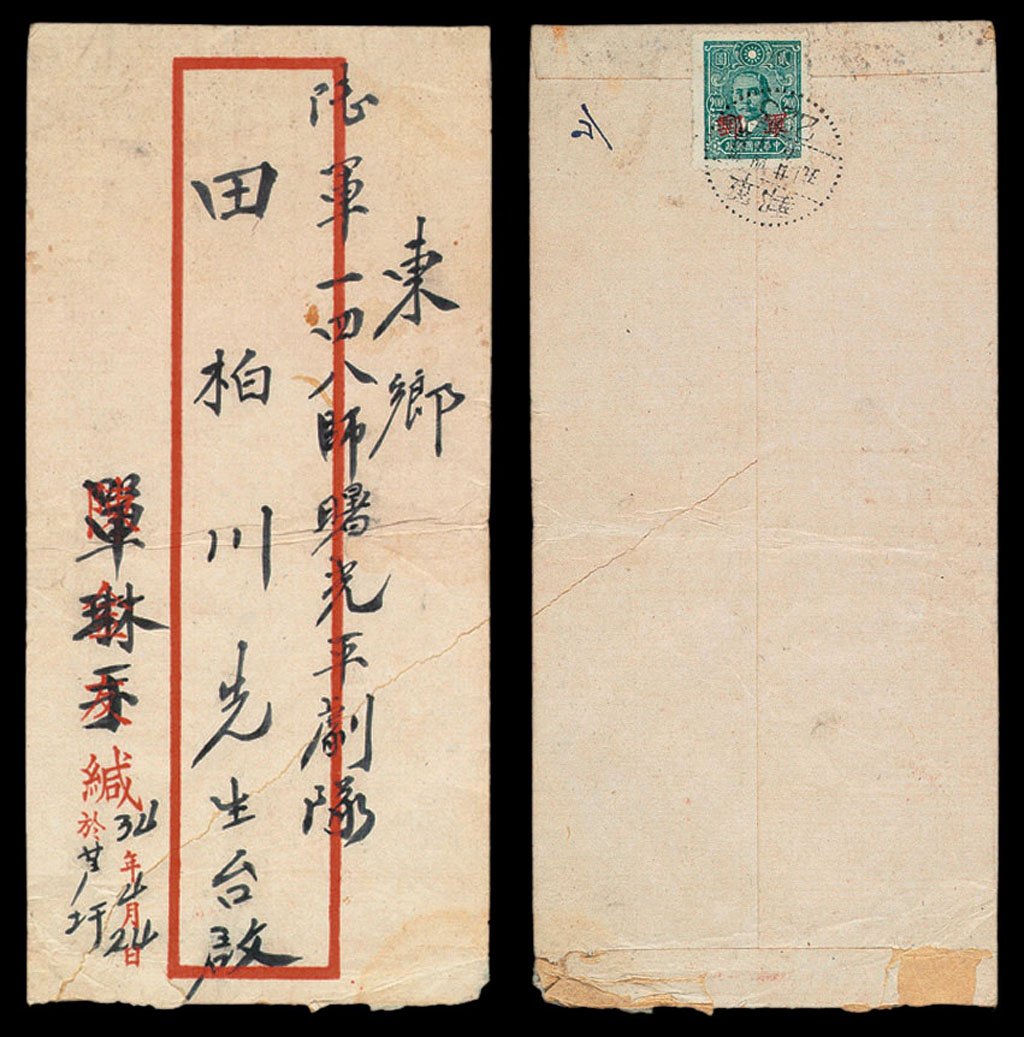 東鄉
陸軍一四八師曙光平劇隊
田柏川先生台啟
單琳
緘
於
圩
34年4月24日
2/
圓 貳
200 200
中華民國郵政